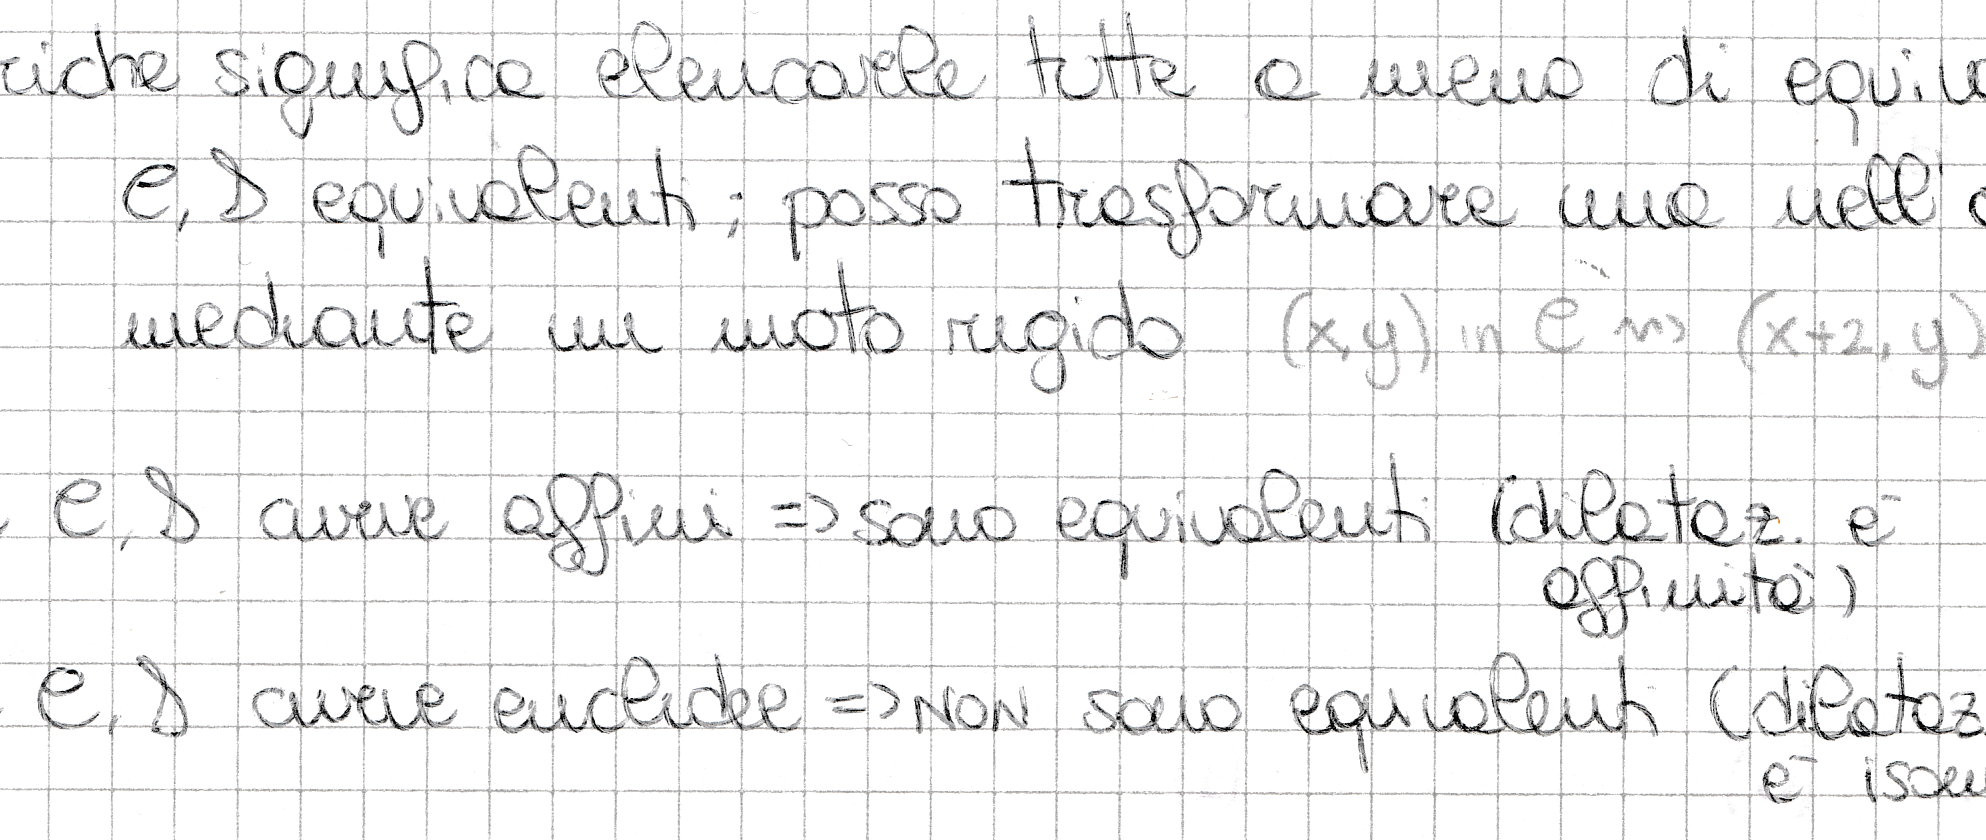 riche significa elencarle tutte a meno di equiva
C, D equivalenti; posso trasformare una nell'a
mediante un moto rigido (x,y) in C ⇝ (x+2, y)
C, D curve affini => sono equivalenti (dilataz. è
affinità)
C, D curve euclidee => NON sono equivalenti (dilataz.
è isom